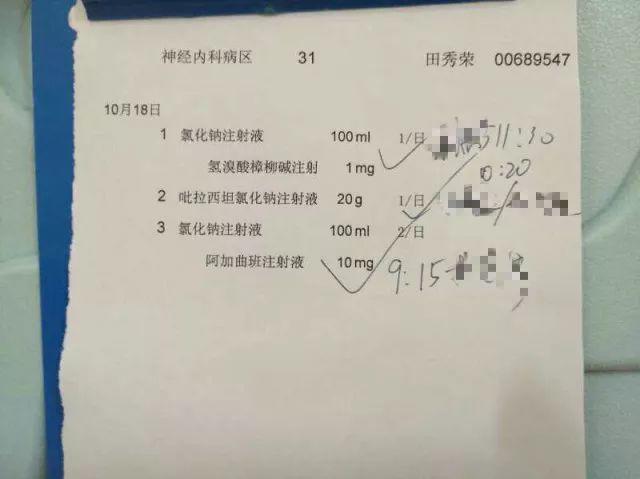 神经内科病区 31 田秀荣 00689547
10月18日
1 氯化钠注射液 100ml 1/日 11:30
氢溴酸樟柳碱注射 1mg
0:20
2 吡拉西坦氯化钠注射液 20g 1/日
3 氯化钠注射液 100ml 2/日
阿加曲班注射液 10mg 9:15